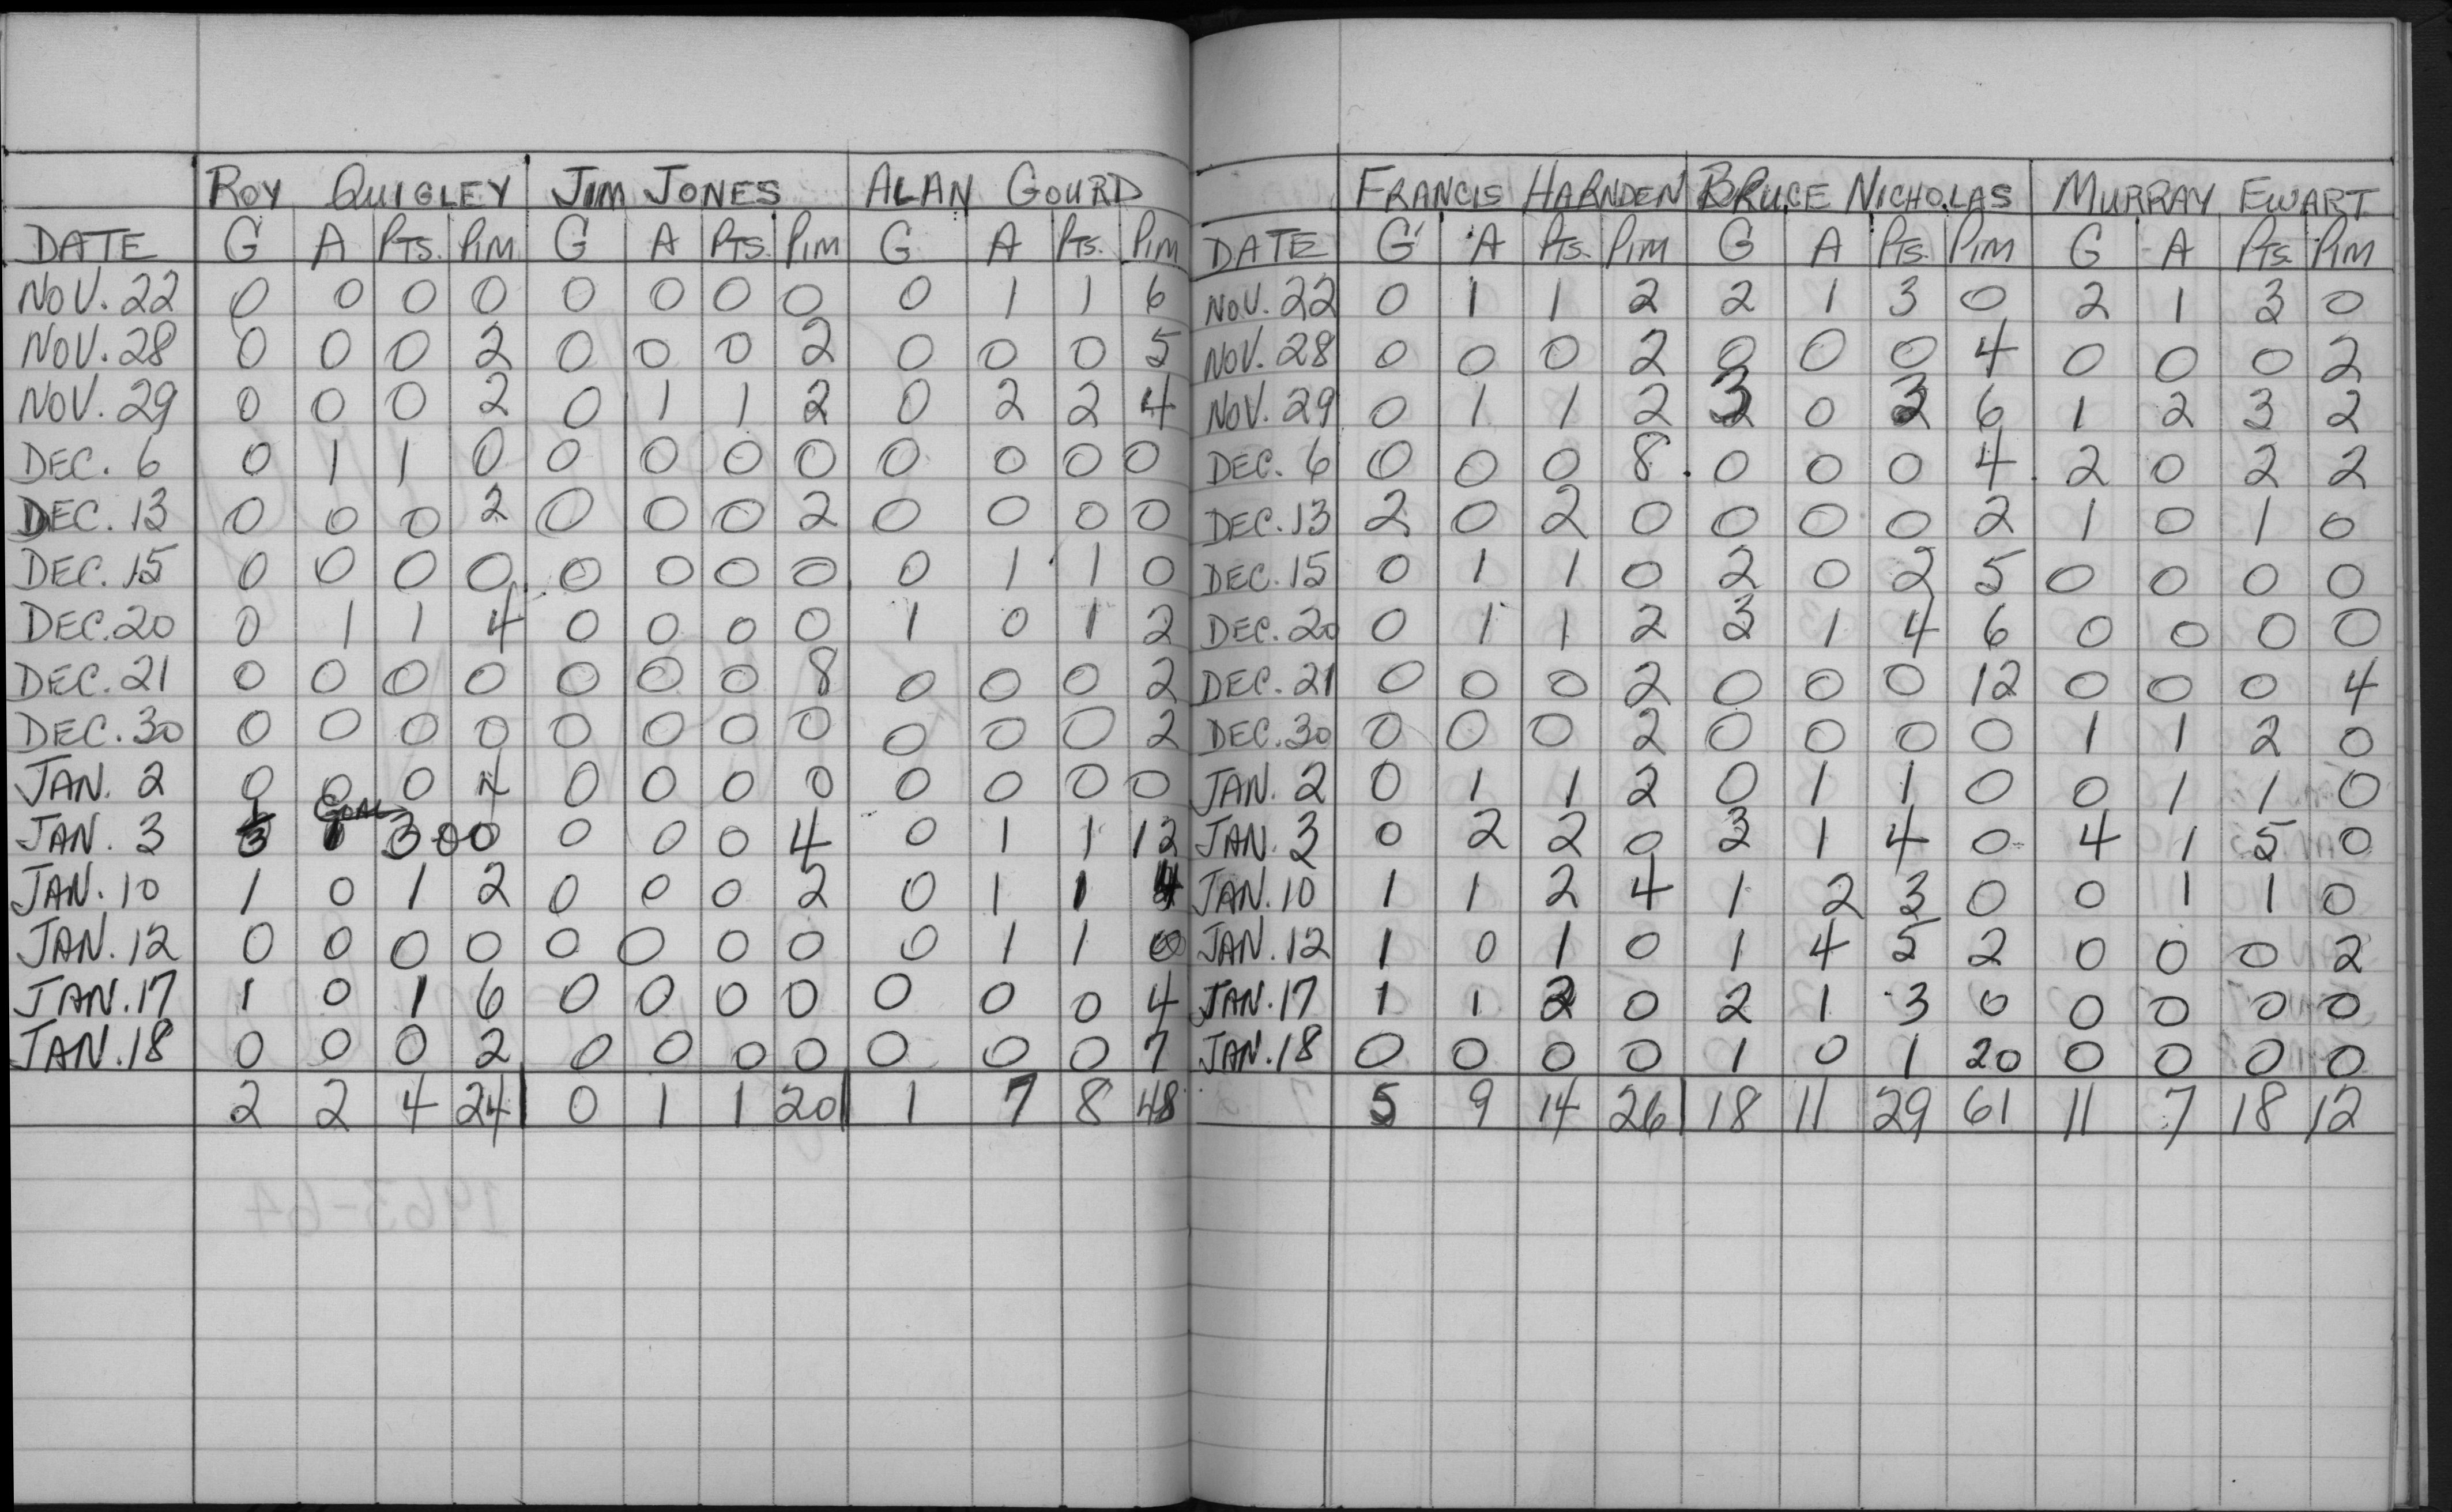 ROY QUIGLEY JIM JONES ALAN GOURD
DATE G A PTS. PIM G A PTS. PIM G A PTS. PIM
NOV. 22 0 0 0 0 0 0 0 0 0 1 1 6
NOV. 28 0 0 0 2 0 0 0 2 0 0 0 5
NOV. 29 0 0 0 2 0 1 1 2 0 2 2 4
DEC. 6 0 1 1 0 0 0 0 0 0 0 0 0
DEC. 13 0 0 0 2 0 0 0 2 0 0 0 0
DEC. 15 0 0 0 0 0 0 0 0 0 1 1 0
DEC. 20 0 1 1 4 0 0 0 0 1 0 1 2
DEC. 21 0 0 0 0 0 0 0 8 0 0 0 2
DEC. 30 0 0 0 0 0 0 0 0 0 0 0 2
JAN. 2 0 0 0 4 0 0 0 0 0 0 0 0
GOAL
JAN. 3 3 1 3 0 0 0 0 0 4 0 1 1 12
JAN. 10 1 0 1 2 0 0 0 2 0 1 1 4
JAN. 12 0 0 0 0 0 0 0 0 0 1 1 0
JAN. 17 1 0 1 6 0 0 0 0 0 0 0 4
JAN. 18 0 0 0 2 0 0 0 0 0 0 0 7
2 2 4 24 0 1 1 20 1 7 8 48
FRANCIS HARNDEN BRUCE NICHOLAS MURRAY EWART
DATE G A PTS. PIM G A PTS. PIM G A PTS. PIM
NOV. 22 0 1 1 2 2 1 3 0 2 1 3 0
NOV. 28 0 0 0 2 0 0 0 4 0 0 0 2
NOV. 29 0 1 1 2 3 0 3 6 1 2 3 2
DEC. 6 0 0 0 8 0 0 0 4 2 0 2 2
DEC. 13 2 0 2 0 0 0 0 2 1 0 1 0
DEC. 15 0 1 1 0 2 0 2 5 0 0 0 0
DEC. 20 0 1 1 2 3 1 4 6 0 0 0 0
DEC. 21 0 0 0 2 0 0 0 12 0 0 0 4
DEC. 30 0 0 0 2 0 0 0 0 1 1 2 0
JAN. 2 0 1 1 2 0 1 1 0 0 1 1 0
JAN. 3 0 2 2 0 3 1 4 0 4 1 5 0
JAN. 10 1 1 2 4 1 2 3 0 0 1 1 0
JAN. 12 1 0 1 0 1 4 5 2 0 0 0 2
JAN. 17 1 1 2 0 2 1 3 0 0 0 0 0
JAN. 18 0 0 0 0 1 0 1 20 0 0 0 0
5 9 14 26 18 11 29 61 11 7 18 12